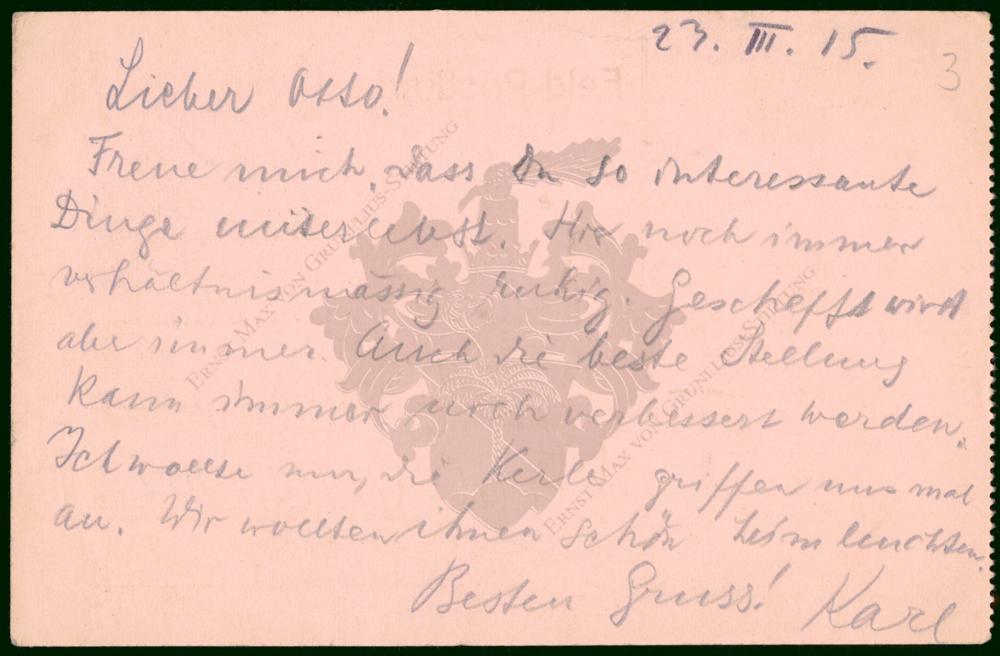 23. III. 15.
3
Lieber Otto!
Freue mich, dass Du so interessante
Dinge miterlebst. Hier noch immer
verhältnismässig ruhig. Geschafft wird
aber immer. Auch die beste Stellung
kann immer noch verbessert werden.
Ich wollte nur, die Kerle griffen uns mal
an. Wir wollten ihnen schön heimleuchten.
Besten Gruss! Karl
ERNST MAX VON GRUNELIUS-STIFTUNG
ERNST MAX VON GRUNELIUS-STIFTUNG